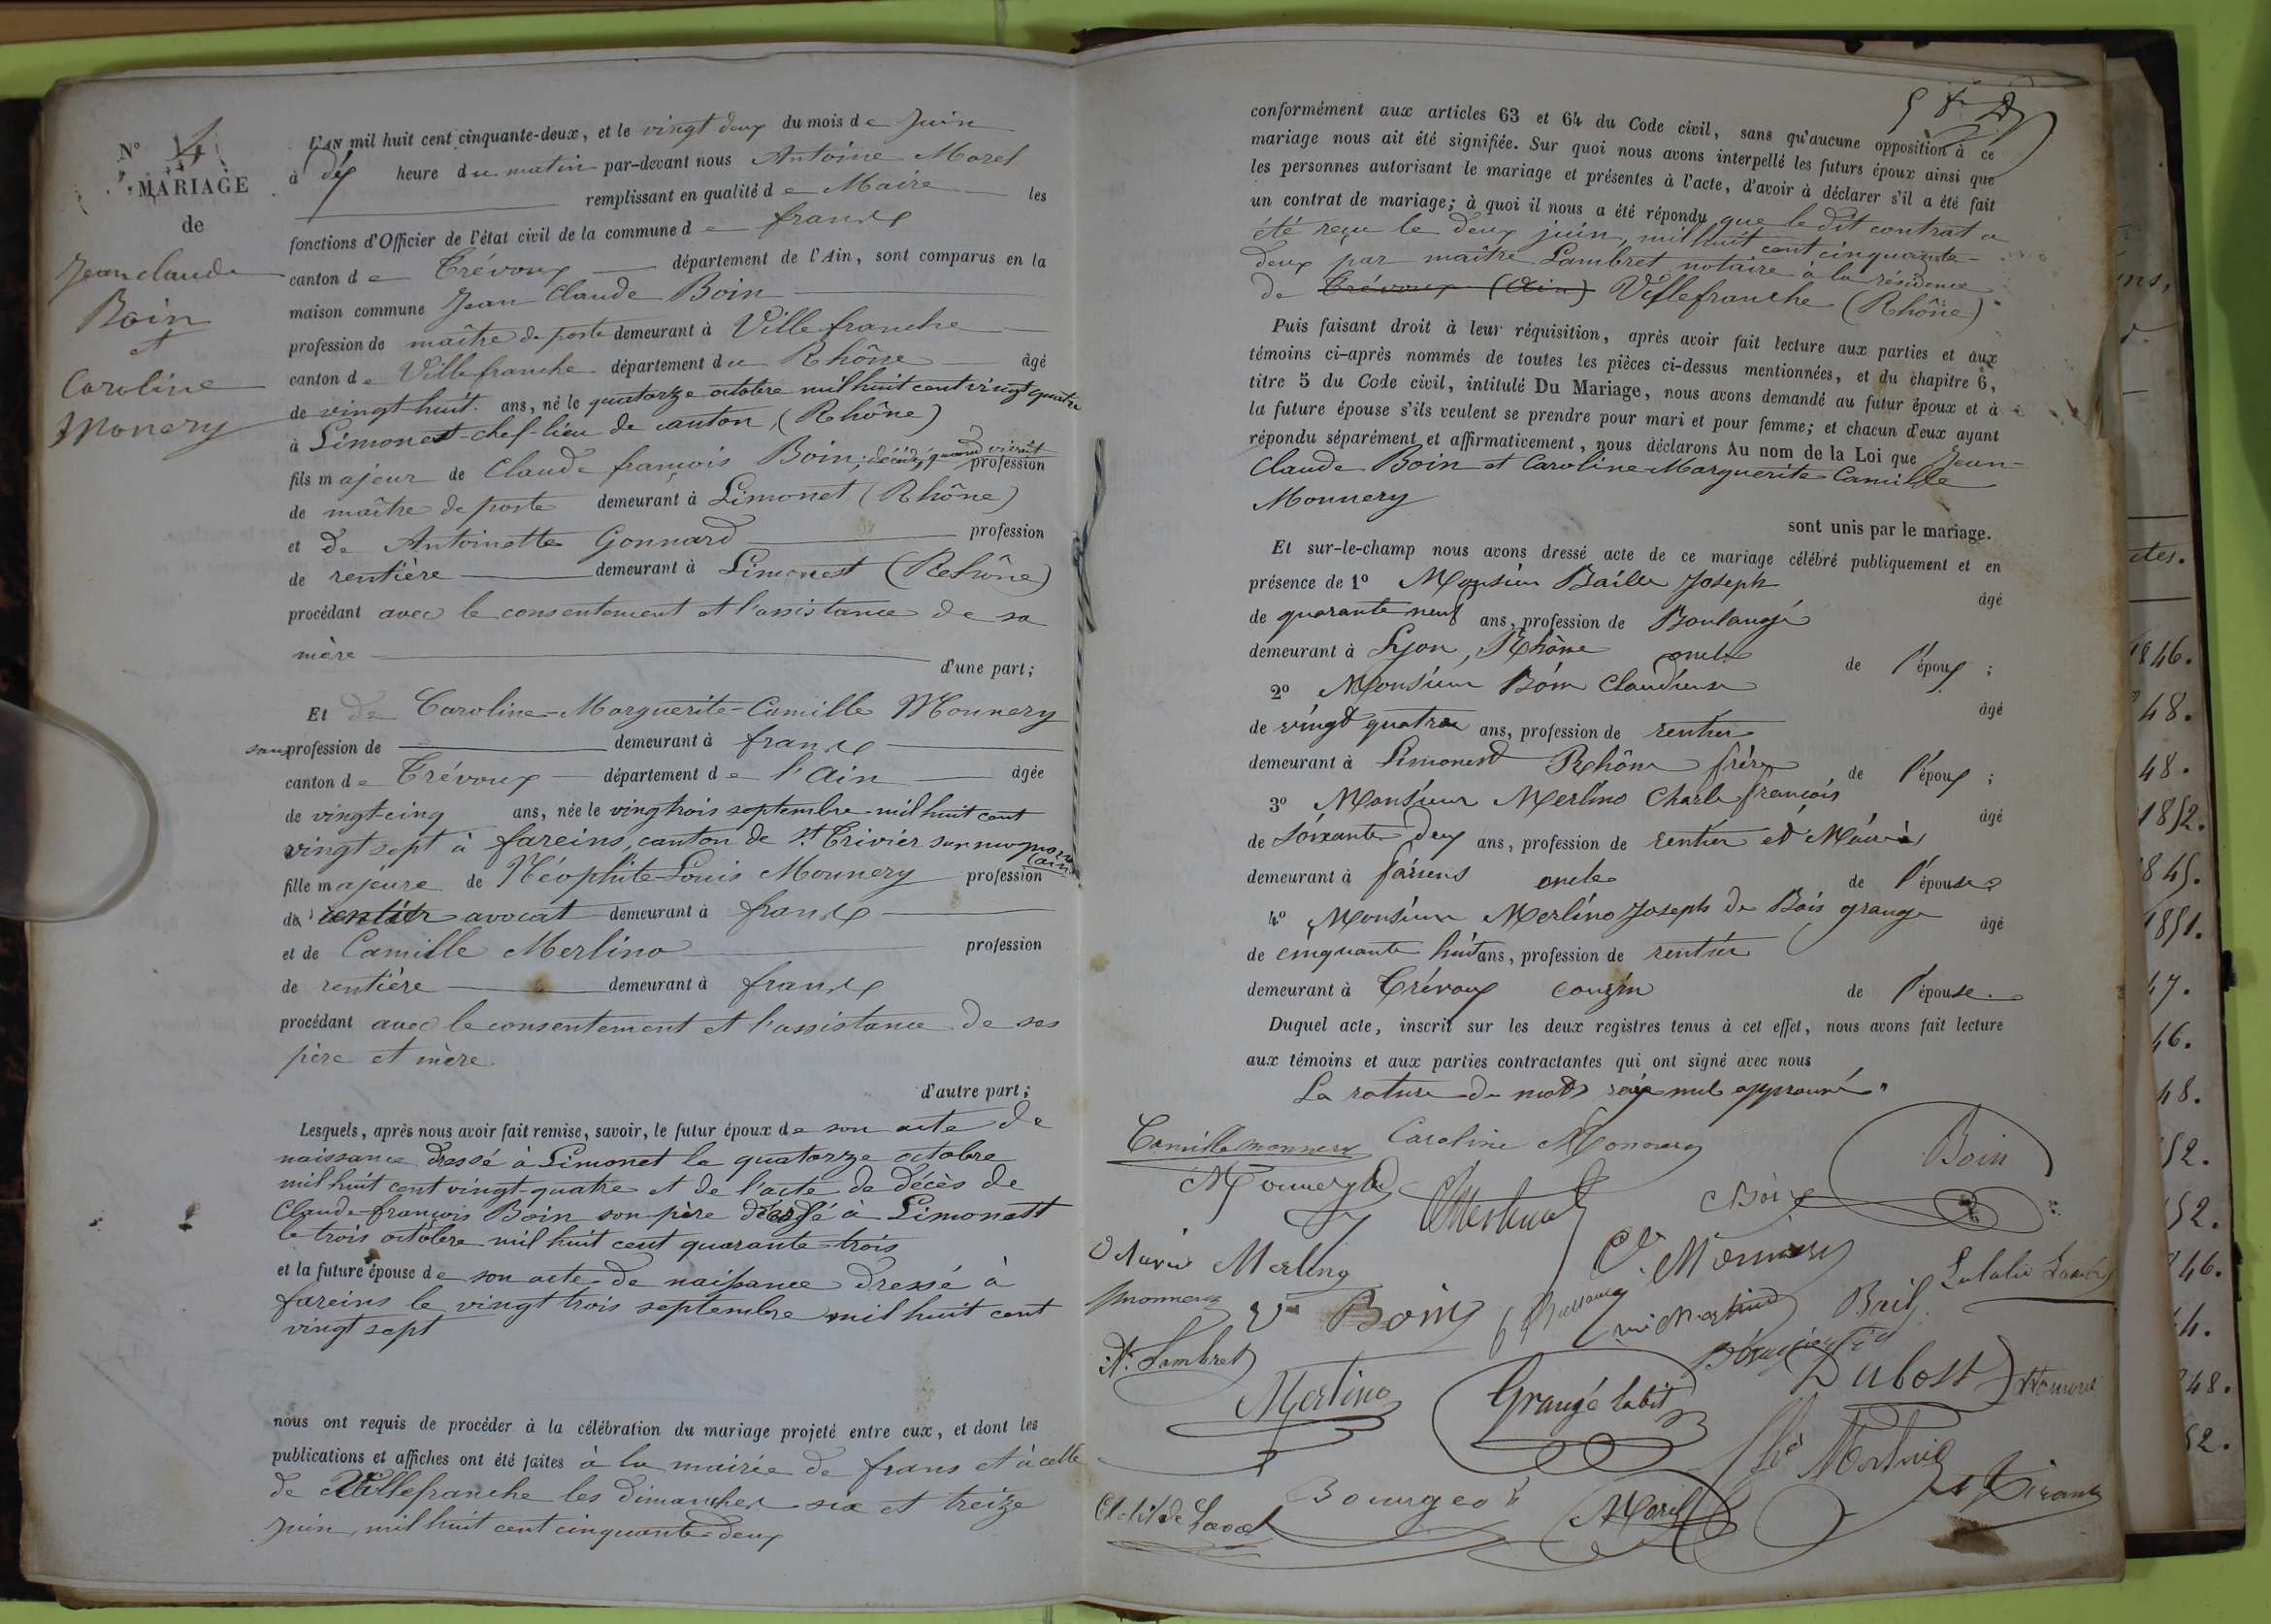 N° 4
MARIAGE
de
Jean claude
Boin
et
Caroline
Monery
L'AN mil huit cent cinquante-deux, et le vingt deux du mois de Juin
à dix heure du matin par-devant nous Antoine Morel
remplissant en qualité de Maire les
fonctions d'Officier de l'état civil de la commune de frans
canton de Trévoux département de l'Ain, sont comparus en la
maison commune Jean Claude Boin
profession de maître de poste demeurant à Villefranche
canton de Villefranche département du Rhône âgé
de vingt huit ans, né le quatorze octobre mil huit cent vingt quatre
à Limonest chef-lieu de canton, (Rhône)
fils majeur de Claude françois Boin, décédé, quand vivait profession
de maître de poste demeurant à Limonet (Rhône)
et de Antoinette Gonnard profession
de rentière demeurant à Limonest (Rehône)
procédant avec le consentement et l'assistance de sa
mère d'une part;
Et de Caroline-Marguerite-Camille Monnery
sans profession de demeurant à frans
canton de Trévoux département de l'Ain âgée
de vingt-cinq ans, née le vingtrois septembre mil huit cent
vingt sept à fareins, canton de St Trivier sur (ain)
fille majeure de Néophite-Louis Monnery profession
de rentier avocat demeurant à frans
et de Camille Merlino profession
de rentière demeurant à frans
procédant avec le consentement et l'assistance de ses
père et mère
d'autre part;
Lesquels, après nous avoir fait remise, savoir, le futur époux de son acte de
naissance dressé à Limonet le quatorze octobre
mil huit cent vingt-quatre et de l'acte de décès de
Claude-françois Boin son père décédé à Limonest
le trois octobre mil huit cent quarante-trois
et la future épouse de son acte de naissance dressé à
fareins le vingt trois septembre mil huit cent
vingt sept
nous ont requis de procéder à la célébration du mariage projeté entre eux, et dont les
publications et affiches ont été faites à la mairie de frans et à celle
de Villefranche les dimanches six et treize
Juin, mil huit cent cinquante-deux
conformément aux articles 63 et 64 du Code civil, sans qu'aucune opposition à ce
mariage nous ait été signifiée. Sur quoi nous avons interpellé les futurs époux ainsi que
les personnes autorisant le mariage et présentes à l'acte, d'avoir à déclarer s'il a été fait
un contrat de mariage; à quoi il nous a été répondu que le dit contrat a
été reçu le deux juin, mil huit cent cinquante-
deux par maître Lambret notaire à la résidence
de Trévoux (Ain) Villefranche (Rhône)
Puis faisant droit à leur réquisition, après avoir fait lecture aux parties et aux
témoins ci-après nommés de toutes les pièces ci-dessus mentionnées, et du chapitre 6,
titre 5 du Code civil, intitulé Du Mariage, nous avons demandé au futur époux et à
la future épouse s'ils veulent se prendre pour mari et pour femme; et chacun d'eux ayant
répondu séparément et affirmativement, nous déclarons Au nom de la Loi que Jean-
Claude Boin et Caroline-Marguerite Camille
Monnery
sont unis par le mariage.
Et sur-le-champ nous avons dressé acte de ce mariage célébré publiquement et en
présence de 1° Monsieur Baille Joseph âgé
de quarante neuf ans, profession de Boulangé
demeurant à Lyon, Rhône oncle de l'époux;
2° Monsieur Boin Claudius âgé
de vingt quatre ans, profession de rentier
demeurant à Limonest Rhône frère de l'époux;
3° Monsieur Merlino Charle françois âgé
de Soixante deux ans, profession de rentier et
demeurant à fariens oncle de l'épouse
4° Monsieur Merlino Joseph de Bois grange âgé
de cinquante huit ans, profession de rentier
demeurant à Trévoux couzin de l'épouse.
Duquel acte, inscrit sur les deux registres tenus à cet effet, nous avons fait lecture
aux témoins et aux parties contractantes qui ont signé avec nous
La rature de mots rayé nul approuvé
Camille monnery Caroline Monnery Boin
Merlino Boin
Merlino Monnery
monnery Ve Boin Bril Eulalie
Lambret Dubost
Merlino Grangé labit
Bourgeot Morel
Clotilde Laval